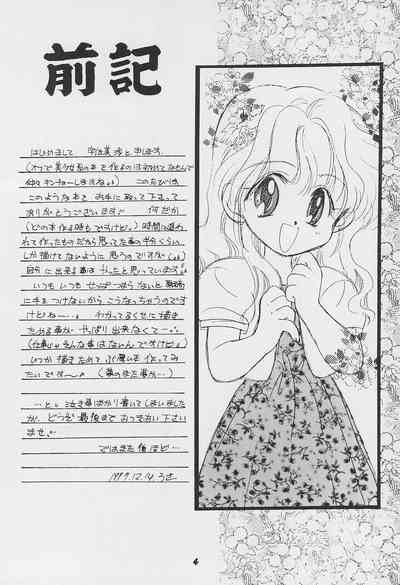 前記
はじめまして 宇佐美 渉と申します。
(オフで美少女系の本を作るのは初めてなもんで
このたびは
このような本を お手に取って下さって
ありがとうございます 何だか
(どの本作る時もですけど。) 時間に追わ
れて作ったものだから思ってた事の半分くらい
しか描けてないように思うのですが
自分に出来る事は やったと思っています
いつも いつも せっぱつまらないと
に手をつけないから こうなっちゃうのです
けどねー わかってるくせに 描き
ためる事が やっぱり出来なくて
(仕事じゃそんな事はないんですけど)
いつか描きためて ぶ厚い本作ってみ
たいですー (夢のまた夢か…)
…と。泣き事ばかり書いてしまいました
が、どうぞ 最後まで おつきあい下さい
ませ。
ではまた 後ほど…
1997.12.14 うさ
4